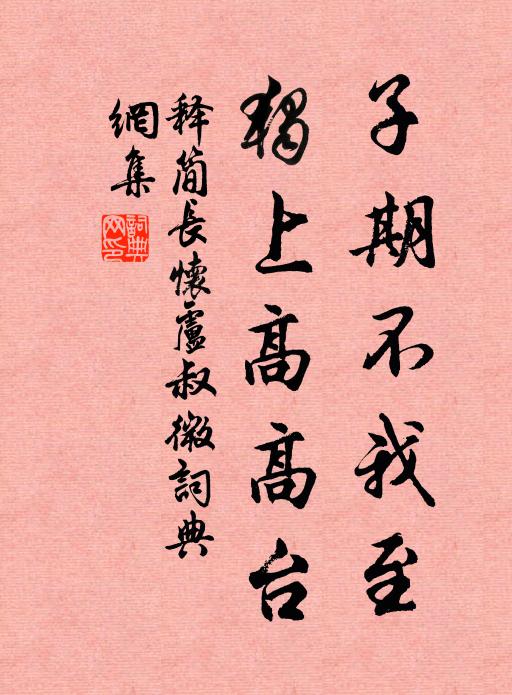 子期不我至
獨上高高台
释简長懷盧叔微詞典
網集
詞典網印